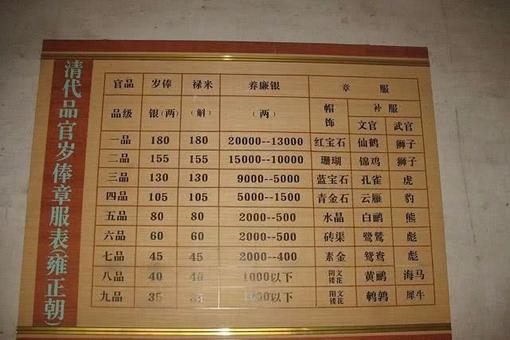 清代品官岁俸章服表(雍正朝)
官品 岁俸 禄米 养廉银 章 服
品级 银(两) (斛) (两) 帽饰 补服
文官 武官
一品 180 180 20000--13000 红宝石 仙鹤 狮子
二品 155 155 15000--10000 珊瑚 锦鸡 狮子
三品 130 130 9000--5000 蓝宝石 孔雀 虎
四品 105 105 5000--1500 青金石 云雁 豹
五品 80 80 2000--500 水晶 白鹇 熊
六品 60 60 2000--500 砖渠 鹭鸶 彪
七品 45 45 2000--400 素金 鸳鸯 彪
八品 40 40 1000以下 阴文镂花 黄鹂 海马
九品 35 35 1000以下 阳文镂花 鹌鹑 犀牛